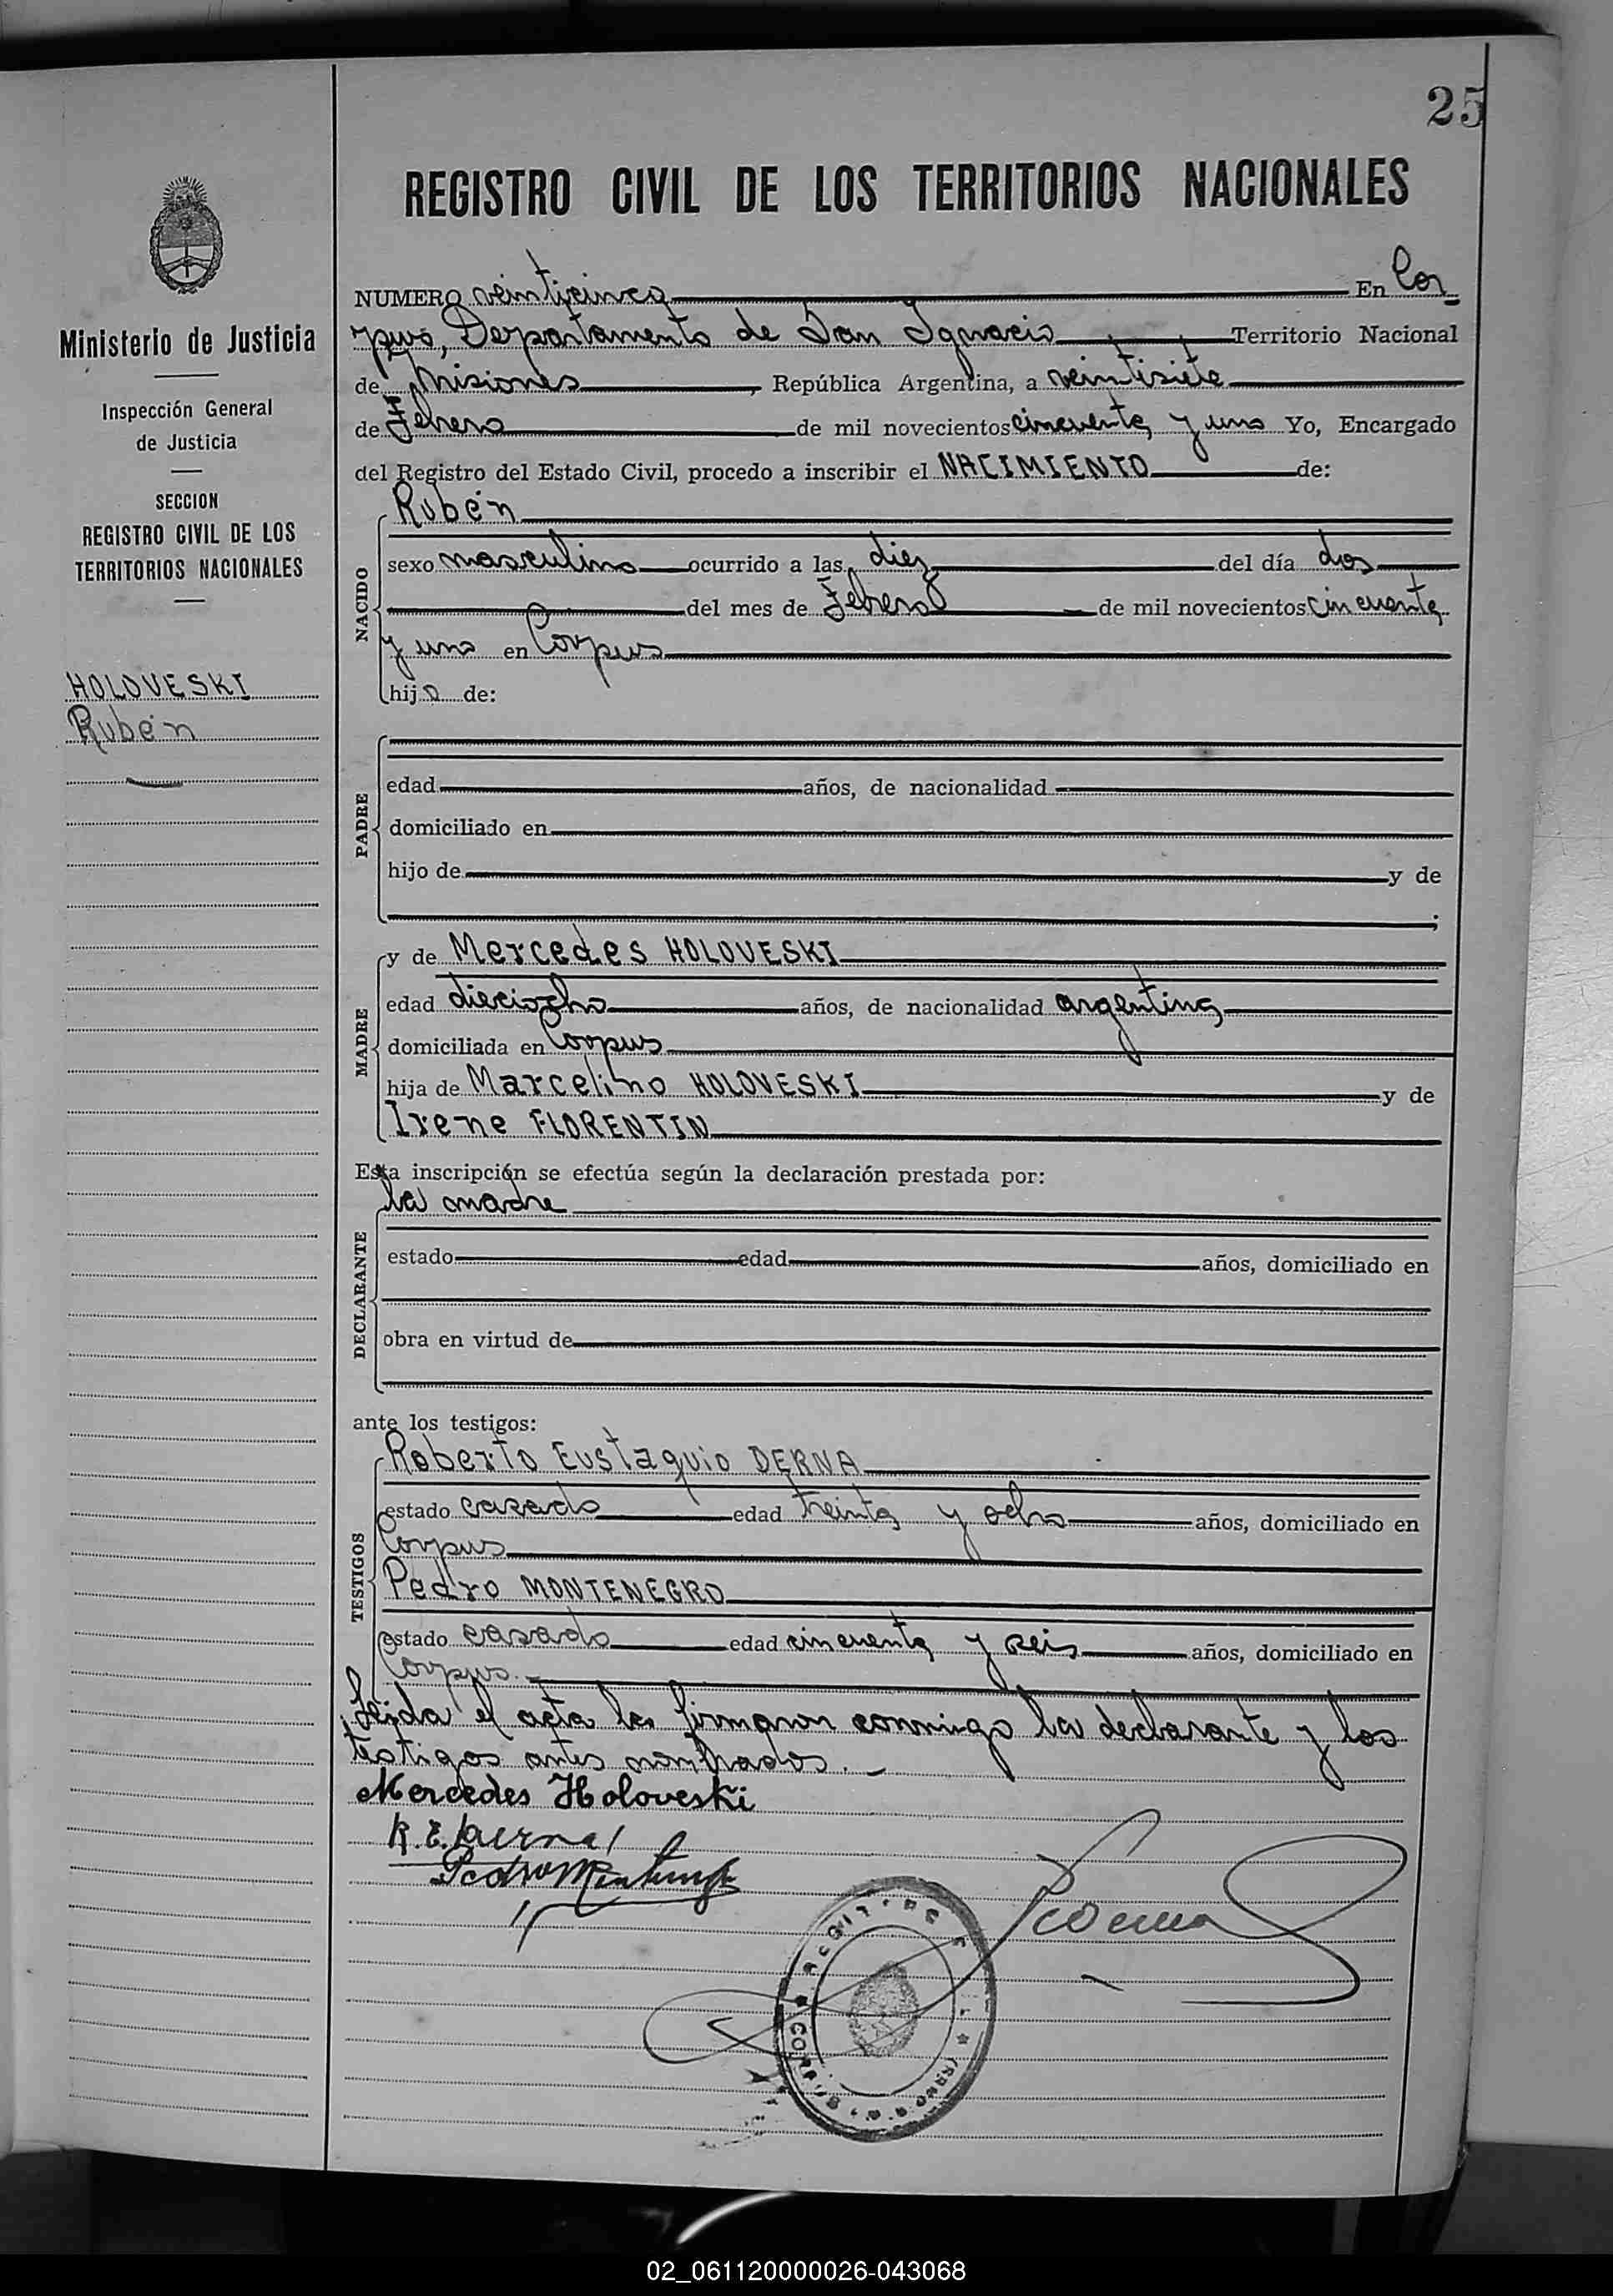 25
REGISTRO CIVIL DE LOS TERRITORIOS NACIONALES
Ministerio de Justicia
Inspección General
de Justicia
SECCION
REGISTRO CIVIL DE LOS
TERRITORIOS NACIONALES
HOLOVESKI
Rubén
NUMERO veinticinco En Cor
pus, Departamento de San Ignacio Territorio Nacional
de Misiones, República Argentina, a veintisiete
de Febrero de mil novecientos cincuenta y uno Yo, Encargado
del Registro del Estado Civil, procedo a inscribir el NACIMIENTO de:
NACIDO
Rubén
sexo masculino ocurrido a las diez del día dos
del mes de Febrero de mil novecientos cincuenta
y uno en Corpus
hijo de:
PADRE
edad años, de nacionalidad
domiciliado en
hijo de y de
;
MADRE
y de Mercedes HOLOVESKI
edad dieciocho años, de nacionalidad argentina
domiciliada en Corpus
hija de Marcelino HOLOVESKI y de
Irene FLORENTIN
Esta inscripción se efectúa según la declaración prestada por:
DECLARANTE
la madre
estado edad años, domiciliado en
obra en virtud de
ante los testigos:
TESTIGOS
Roberto Eustaquio DERNA
estado casado edad treinta y ocho años, domiciliado en
Corpus
Pedro MONTENEGRO
estado casado edad cincuenta y seis años, domiciliado en
Corpus.
Leida el acta la firmaron conmigo la declarante y los
testigos antes nombrados.
Mercedes Holoveski
CORPUS
02_061120000026-043068